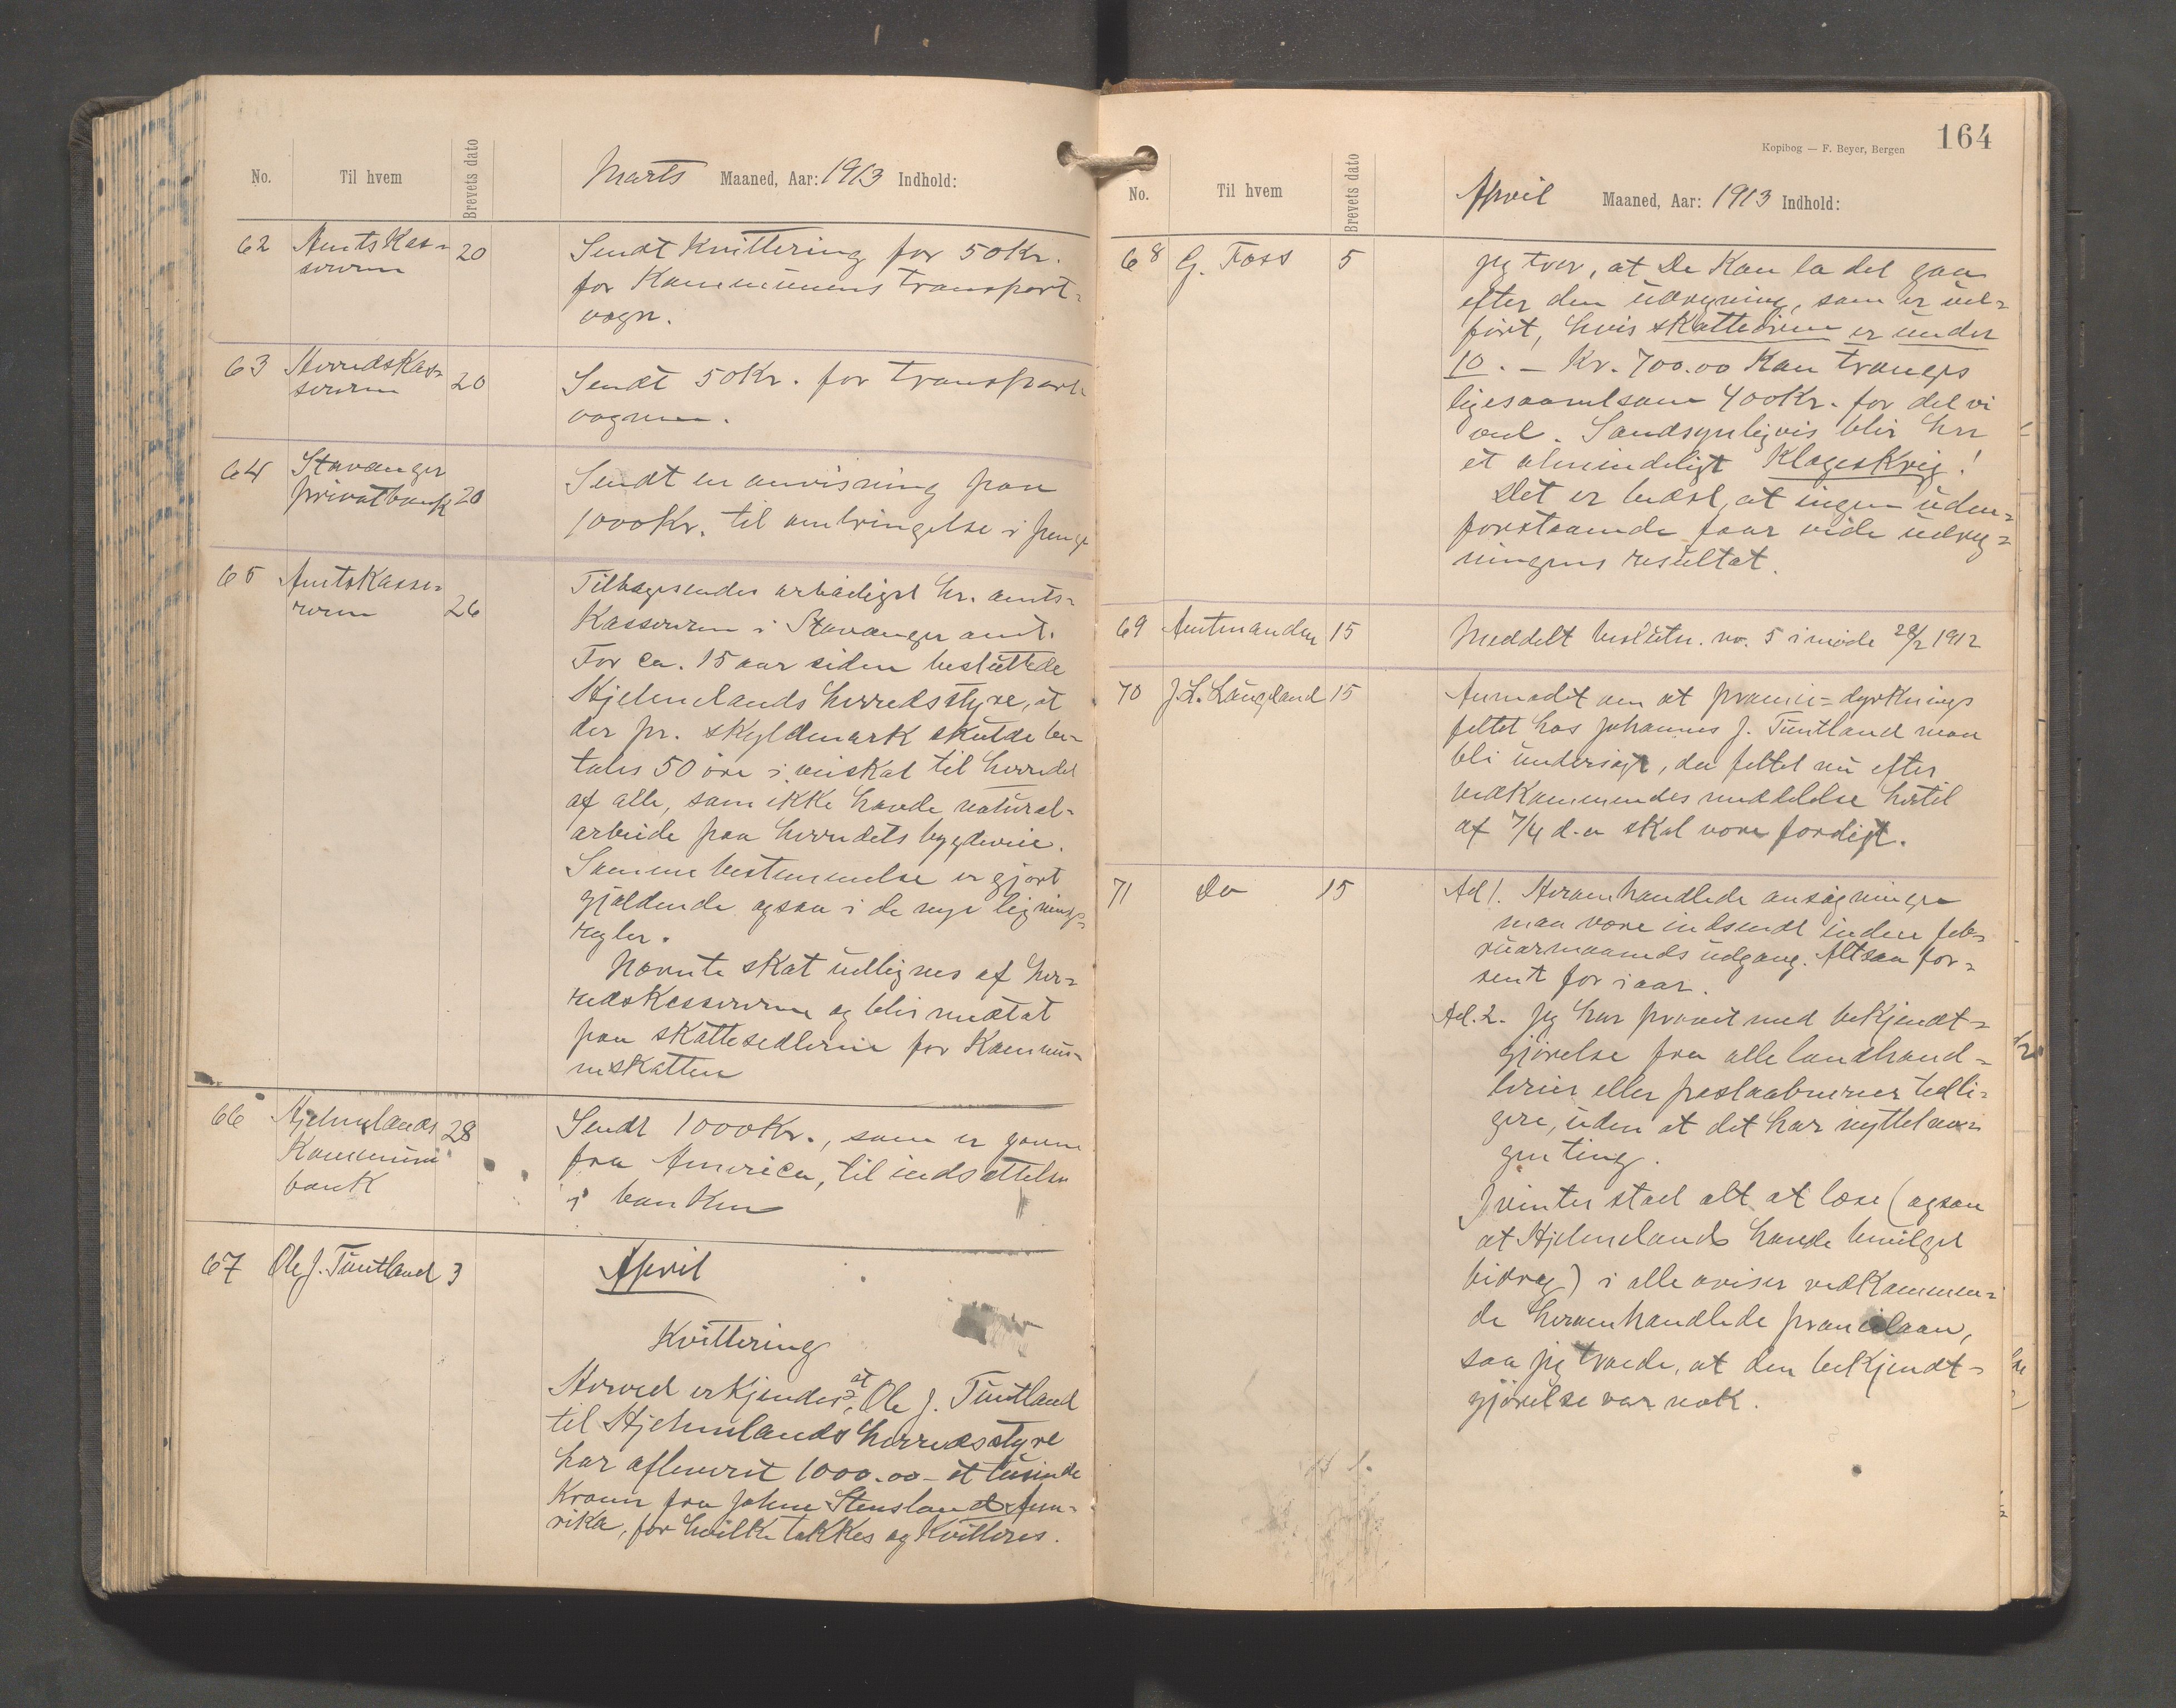 No. Til hvem Brevets dato Marts Maaned, Aar: 1913 Indhold:
62 Amtskas= 20 Sendt kvittering for 50 Kr.
sereren for Kommunens transport=
vogn.
63 Herredskas= 20 Sendt 50 Kr. for transport
sereren vognen.
64 Stavanger Sendt en anvisning paa
privatbank 20 1000 Kr. til ombringelse i penge
65 Amtskasse= 26 Tilbagesendes ærbødigst hr. amts=
reren kassereren i Stavanger amt.
For ca. 15 aar siden besluttede
Hjelmelands herredsstyre, at
der pr. skyldmark skulde be=
tales 50 øre i veiskat til herredet
af alle, som ikke havde natural=
arbeide paa herredets bygdeveie.
Samme bestemmelse er gjort
gjældende ogsaa i de nye lignings=
regler.
Nævnte skat utlignes af her=
redskassereren og blir medtat
paa skattesedlerne for Kommu=
neskatten
66 Hjelmelands 28 Sendt 1000 Kr., som er
Kommune fra America, til indsættelse
bank i banken
67 Ole J. Tuntland 3 April
Kvittering
Herved erkjendes, at Ole J. Tuntland
til Hjelmelands herredsstyre
har afleverit 1000.00 - et tusinde
Kroner fra Johne Stensland Ame=
rika, for hvilke takkes og kvitteres.
Kopibog — F. Beyer, Bergen 164
No. Til hvem Brevets dato April Maaned, Aar: 1913 Indhold:
68 G. Foss 5 Jeg tror, at De kan la det gaa
efter den utregning, som er ut=
ført, hvis skatteøren er under
10. — Kr. 700.00 kan trænges
ligesaavel som 400 Kr. for det vi
ved. Sandsynligvis blir her
et almindeligt Klageskrig!
Det er bedst, at ingen uden=
forstaaende faar vide utreg=
ningens resultat.
69 Amtmanden 15 Meddelt beslutn. no. 5 i møde 28/2 1912
70 J. L. Laugaland 15 Anmodet om at præmie=dyrknings
feltet hos Johannes J. Tuntland maa
bli undersøgt, da feltet nu efter
vedkommendes meddelelse hertil
af 7/4 d.a skal være færdigt.
71 Do 15 Ad 1. Heromhandlede ansøgninger
maa være indsendt inden feb=
ruarmaaneds udgang. Altsaa for=
sent for iaar.
Ad. 2. Jeg har prøvet med bekjendt=
gjørelse fra alle landhand=
lerier eller postaabnerier tidli=
gere, uden at det har nyttet no=
gen ting.
I vinter stod alt at læse (ogsaa
at Hjelmeland havde bevilget
bidrag) i alle aviser vedkommen=
de heromhandlede præmielaan,
saa jeg troede, at den bekjendt=
gjørelse var nok.